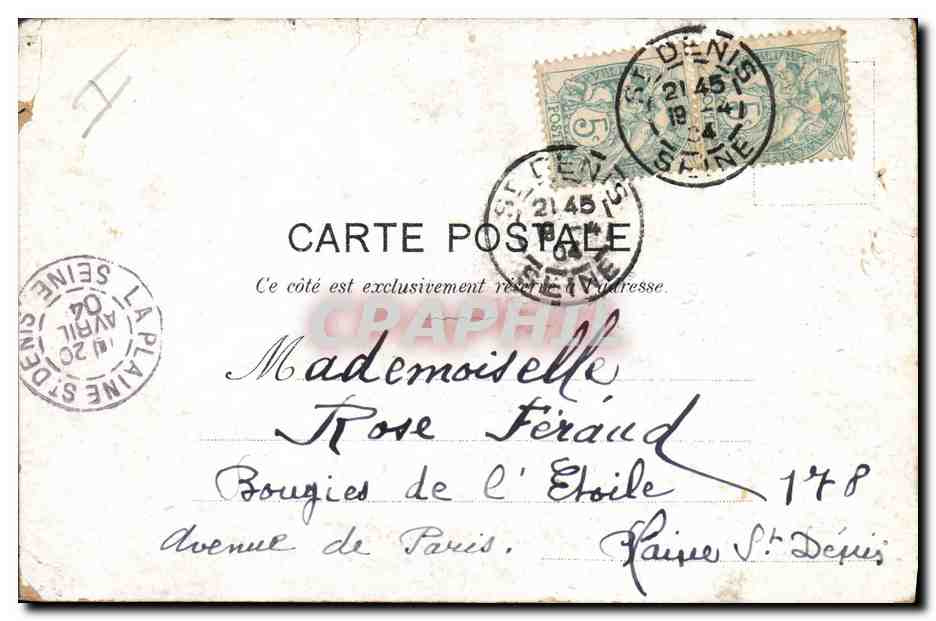 ST DENIS
21 45
19 -4
04
SEINE
POSTES
5
ST DENIS
21 45
19 -4
04
SEINE
CARTE POSTALE
Ce côté est exclusivement réservé à l'adresse.
CPAPHIL
LA PLAINE ST DENIS
20
AVRIL
04
SEINE
Mademoiselle
Rose Féraud
Bougies de l'Etoile 178
Avenue de Paris. Plaine St Dénis